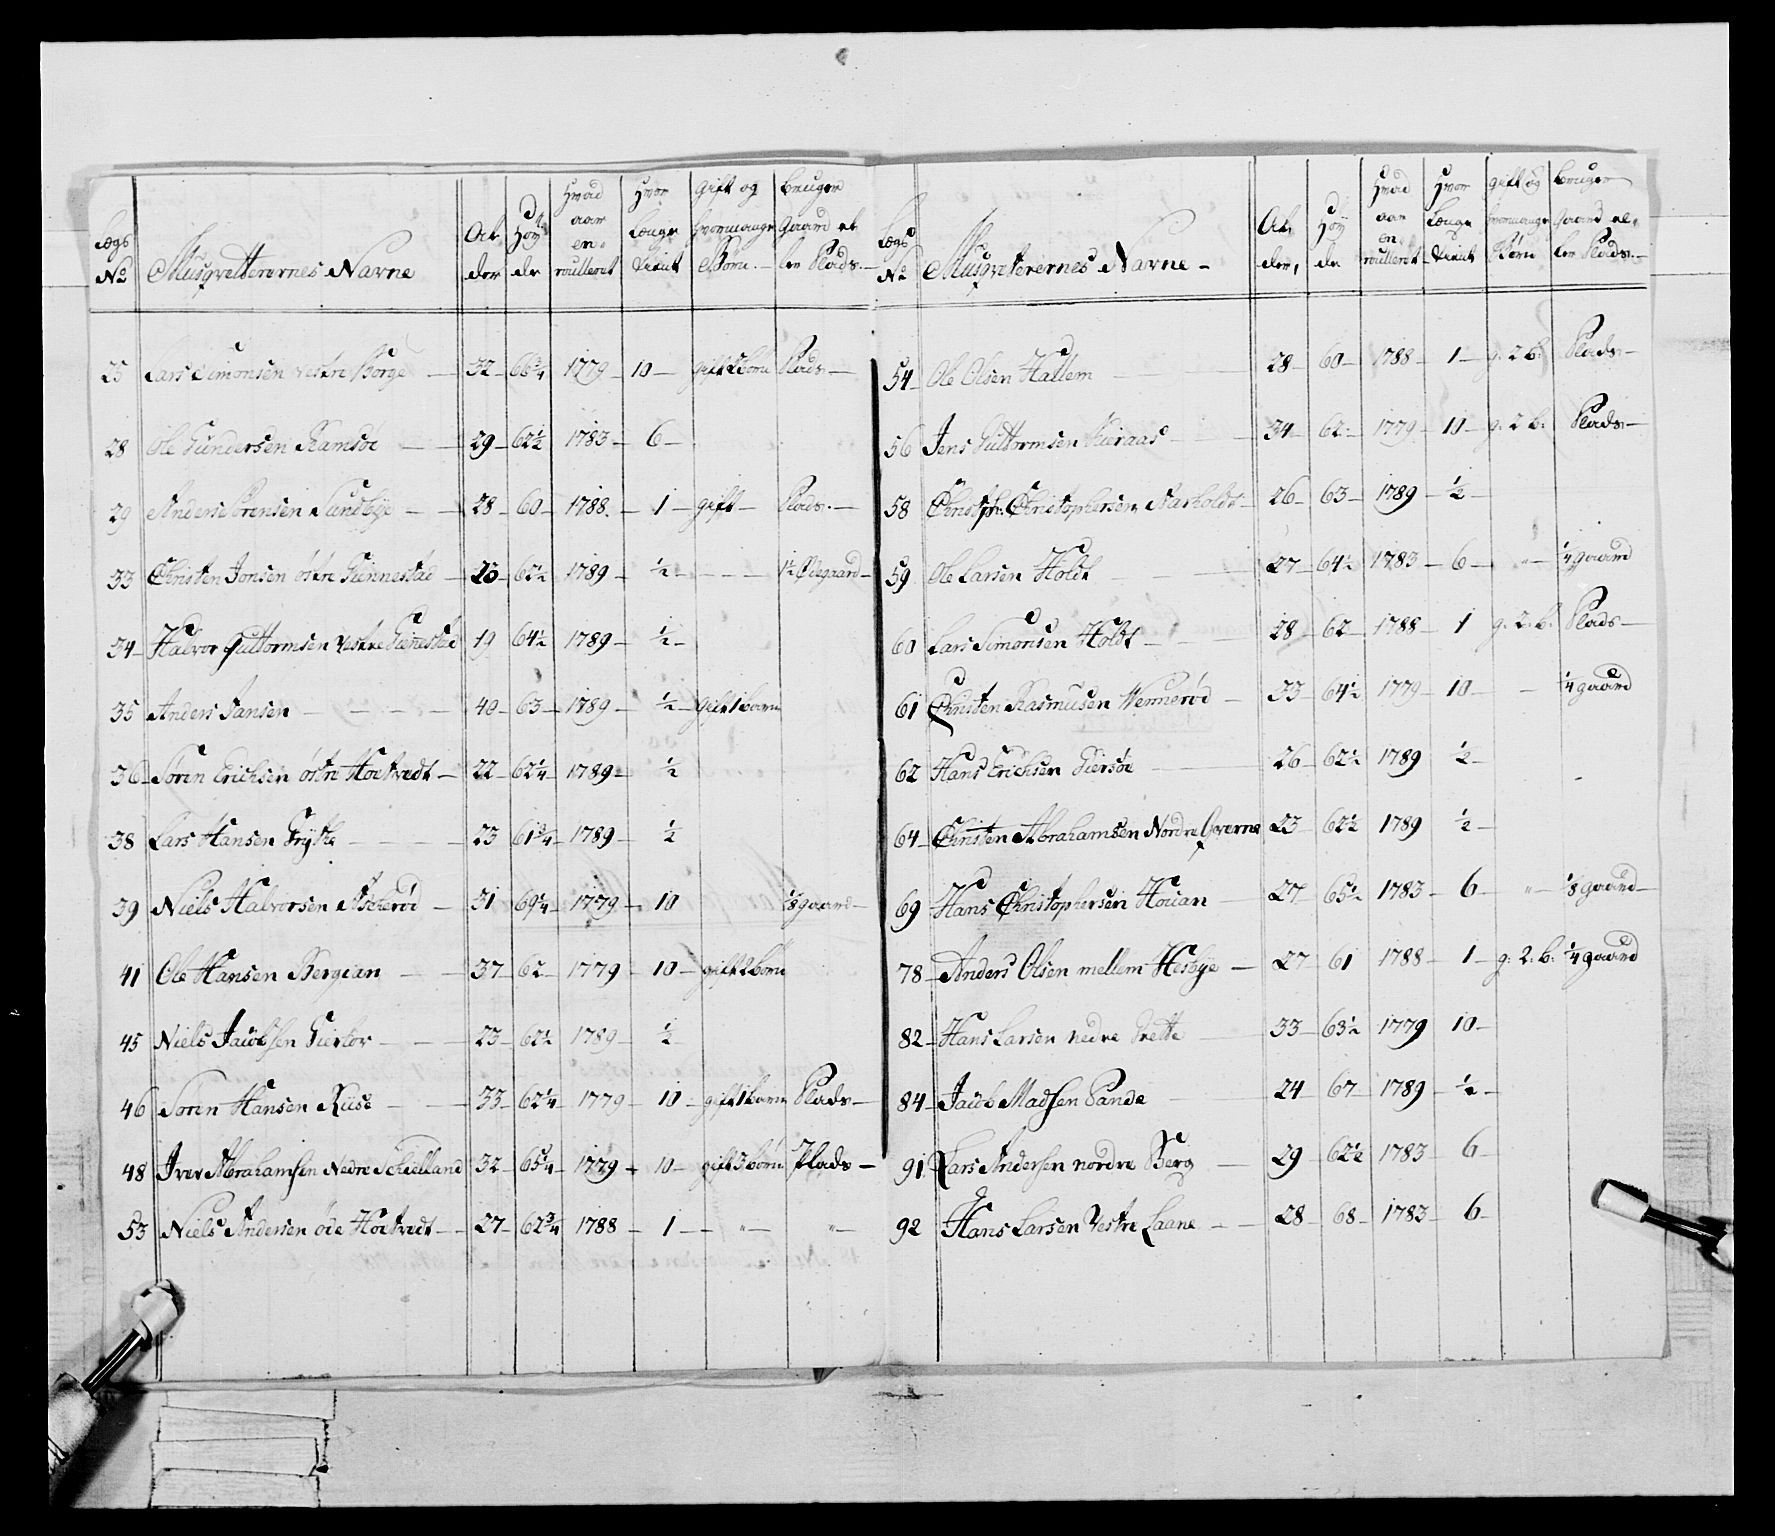 Lægs No | Musqvetterernes Navne | Al der | Høy de | Hvad aar en= roulleret | Hvor længe tient | Gift og hvormange Børn. | bruger Gaard el ler Plads.
25 Lars Simonsen vestre Borge 32 66 3/4 1779 10 gift 2 børn Plads
28 Ole Gundersen Ramsøe 29 62 1/2 1783 6
29 Anders Sørensen Sandbye 28 60 1788. 1 gift Plads.
33 Christen Jonsen østre Gunnestad 23 62 1/2 1789 1/2 1/2 Ødegaard
34 Halvor Guttormsen vestre Gunnestad 19 64 1/2 1789 1/2
35 Anders Jansen 40 63 1789 1/2 gift 1 barn
36 Søren Erichsen østre Hoetvedt 22 62 1/4 1789 1/2
38 Lars Hansen 23 61 3/4 1789 1/2
39 Niels Halvorsen Askerød 31 69 1/4 1779 10 1/8 gaard
41 Ole Hansen Bergean 37 62 1779 10 gift 2 børn
45 Niels Jacobsen 23 62 1/2 1789 1/2
46 Søren Hansen Riise 33 62 1/4 1779 10 gift 1 barn Plads
48 Iver Abrahamsen Nedre Schielland 32 65 1/4 1779 10 gift 3 børn Plads
53 Niels Andersen øde Hoetvedt 27 62 3/4 1788 1 " "
Lægs No | Musqveterernes Navne | Al, der, | Høy de | Hvad aar en= roulleret | Hvor længe tient | gift og hvormange Børn | bruger Gaard el= ler Plads.
54 Ole Olsen Hallem 28 60 1788 1 g: 2 b: Plads
56 Jens Guttormsen 34 62 1779 10 g: 2 b: Plads
58 Christph: Christophersen Narholdt 26 63 1789 1/2
59 Ole Larsen Holdt 27 64 1/2 1783 6 " 1/4 gaard
60 Lars Simonsen Holdt 28 62 1788 1 g: 2. b: Plads
61 Christen Rasmusen Wennerød 33 64 1/2 1779 10 1/4 gaard
62 Hans Erichsen Giersøe 26 62 1/2 1789 1/2
64 Christen Abrahamsen Nordre Qverne 23 62 1/2 1789 1/2
69 Hans Christophersen Houan 27 65 1/2 1783 6 " 1/8 gaard
78 Anders Olsen mellem Hesbye 27 61 1788 1 g: 2. b: 1/4 gaard
82 Hans Larsen nedre Grette 33 63 1/2 1779 10
84 Jacob Madsen Sande 24 67 1789 1/2
91 Lars Andersen nordre Berg 29 62 1/2 1783 6
92 Hans Larsen Vestre Laane 28 68 1783 6